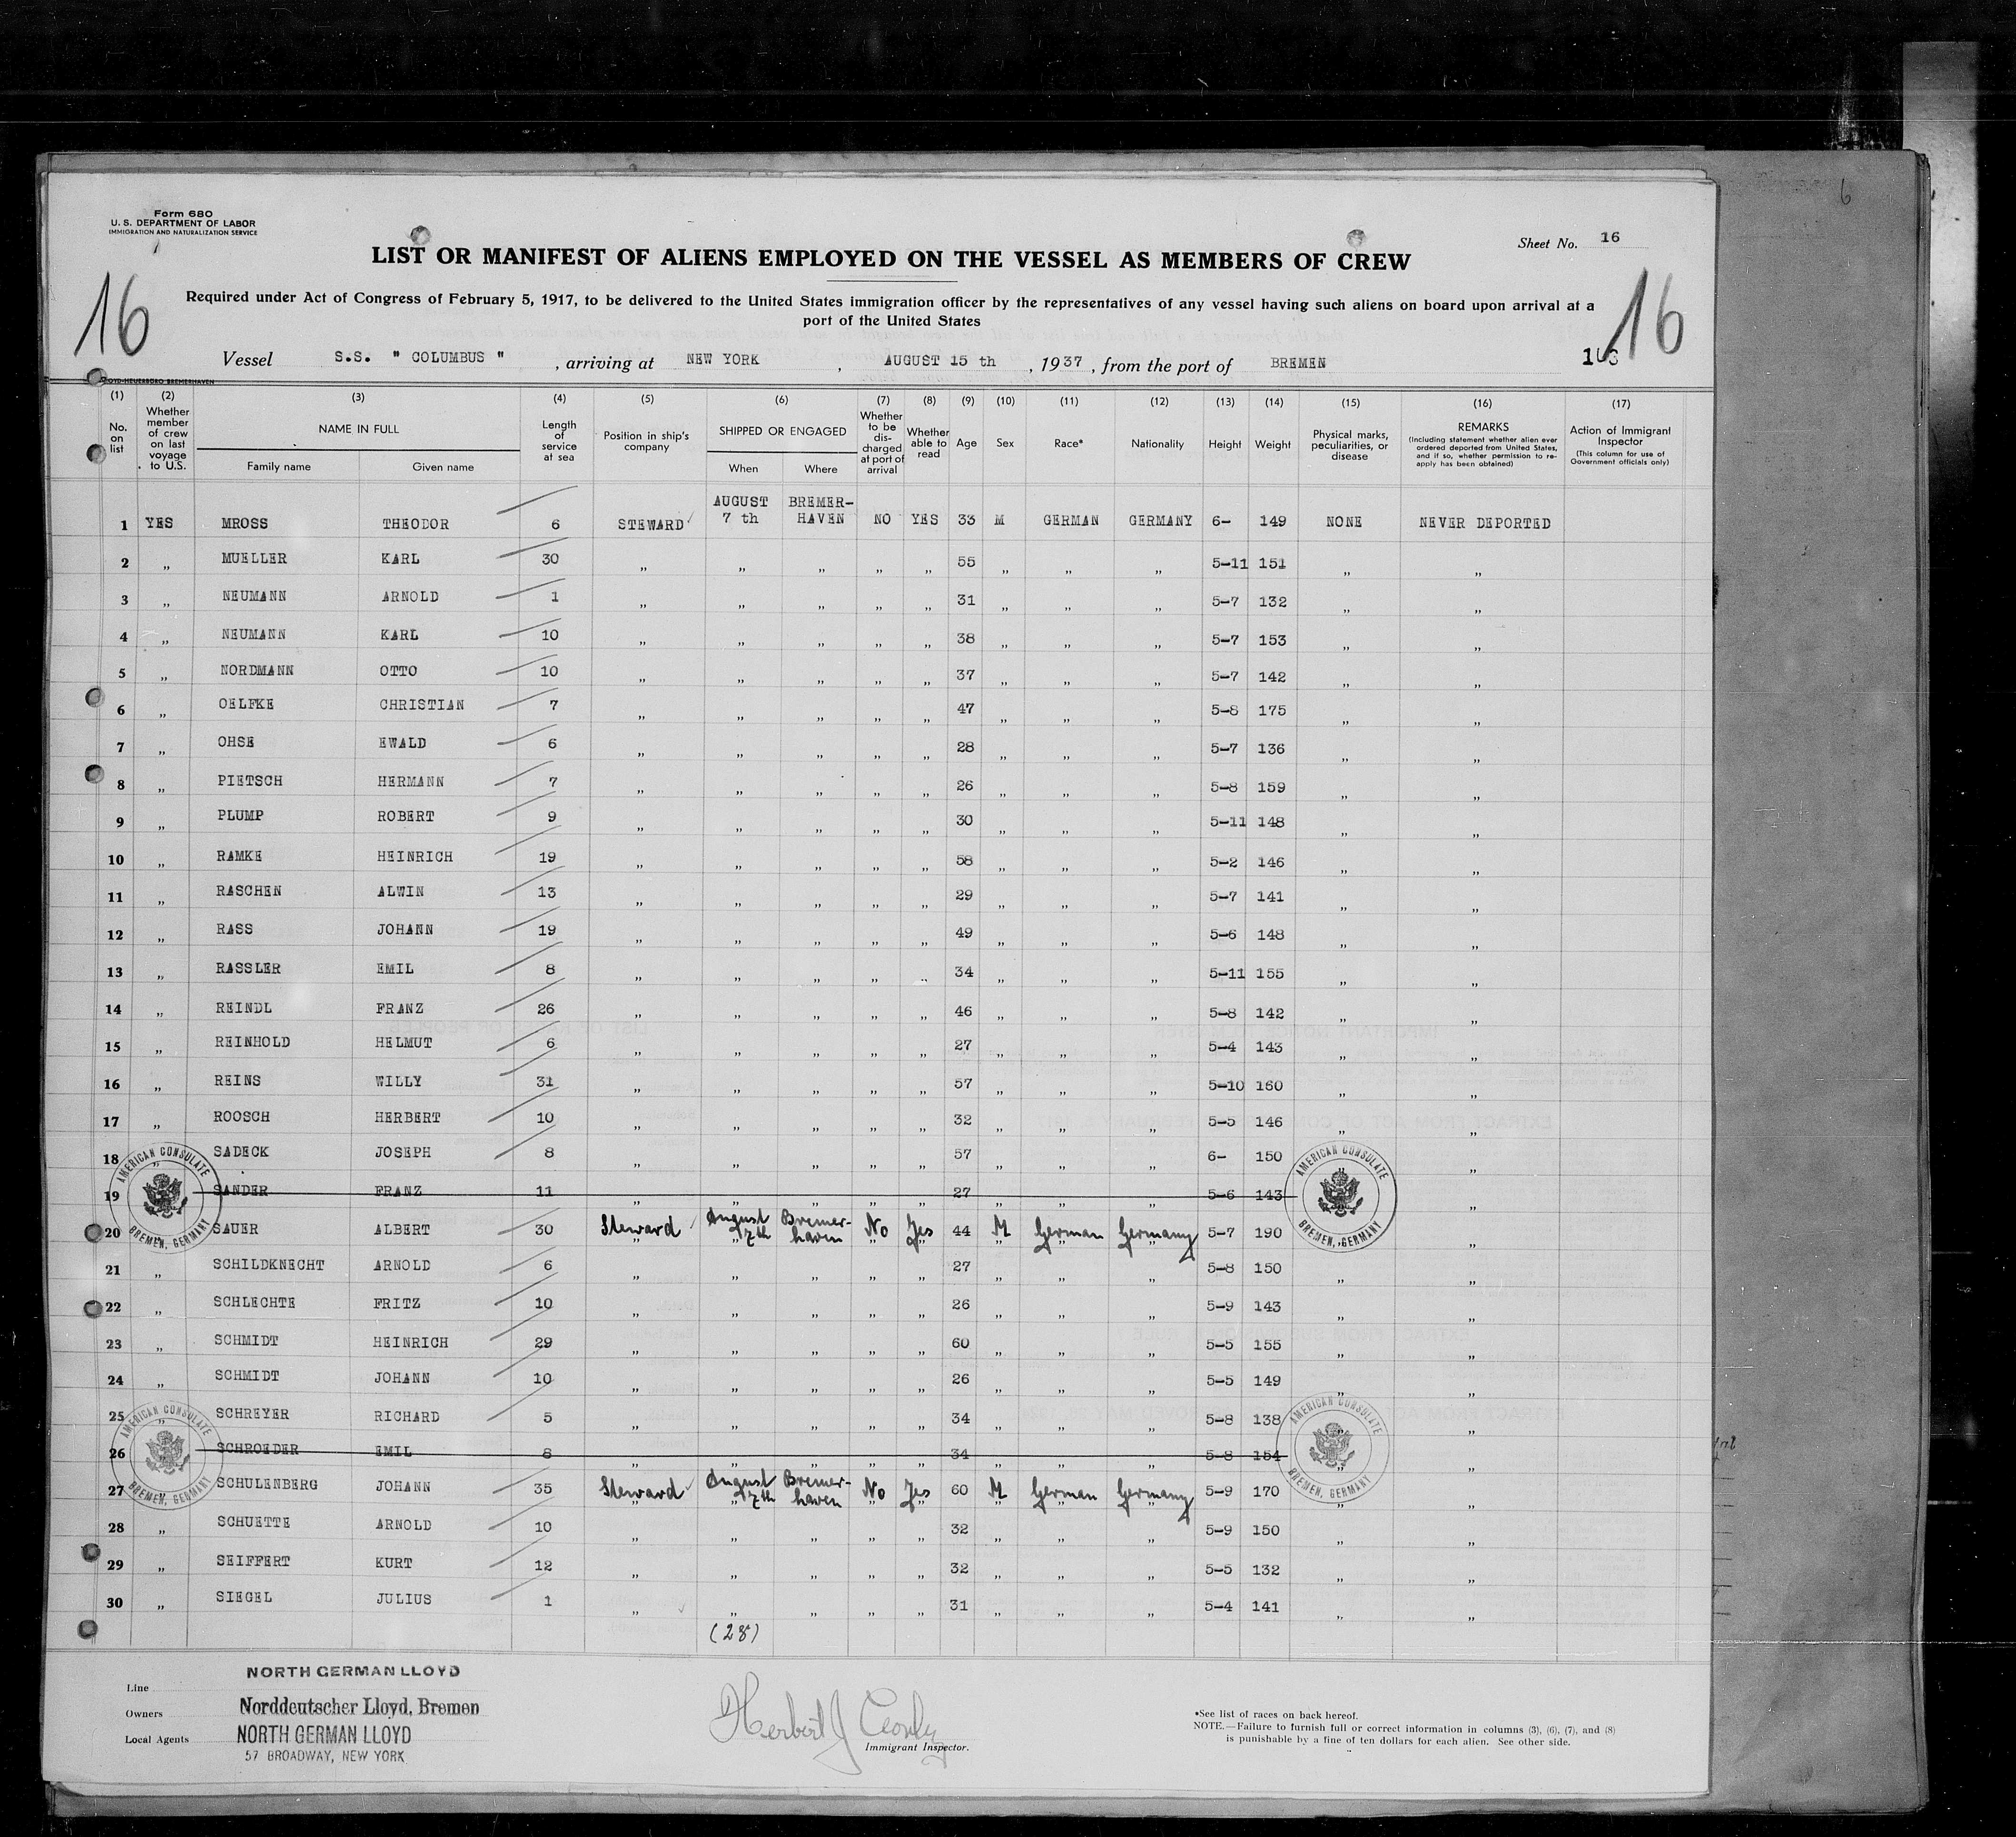 Form 680
U. S. DEPARTMENT OF LABOR
IMMIGRATION AND NATURALIZATION SERVICE
Sheet No. 16
LIST OR MANIFEST OF ALIENS EMPLOYED ON THE VESSEL AS MEMBERS OF CREW
16
16
Required under Act of Congress of February 5, 1917, to be delivered to the United States immigration officer by the representatives of any vessel having such aliens on board upon arrival at a
port of the United States
Vessel S.S. " COLUMBUS " , arriving at NEW YORK , AUGUST 15 th , 1937 , from the port of BREMEN
(1) No. on list
(2) Whether member of crew on last voyage to U.S.
(3) NAME IN FULL
Family name
Given name
(4) Length of service at sea
(5) Position in ship's company
(6) SHIPPED OR ENGAGED
When
Where
(7) Whether to be discharged at port of arrival
(8) Whether able to read
(9) Age
(10) Sex
(11) Race*
(12) Nationality
(13) Height
(14) Weight
(15) Physical marks, peculiarities, or disease
(16) REMARKS (Including statement whether alien ever ordered deported from United States, and if so, whether permission to re-apply has been obtained)
(17) Action of Immigrant Inspector (This column for use of Government officials only)
1 YES MROSS THEODOR 6 STEWARD AUGUST 7 th BREMER-HAVEN NO YES 33 M GERMAN GERMANY 6- 149 NONE NEVER DEPORTED
2 „ MUELLER KARL 30 „ „ „ „ „ 55 „ „ „ 5-11 151 „ „
3 „ NEUMANN ARNOLD 1 „ „ „ „ „ 31 „ „ „ 5-7 132 „ „
4 „ NEUMANN KARL 10 „ „ „ „ „ 38 „ „ „ 5-7 153 „ „
5 „ NORDMANN OTTO 10 „ „ „ „ „ 37 „ „ „ 5-7 142 „ „
6 „ OELFKE CHRISTIAN 7 „ „ „ „ „ 47 „ „ „ 5-8 175 „ „
7 „ OHSE EWALD 6 „ „ „ „ „ 28 „ „ „ 5-7 136 „ „
8 „ PIETSCH HERMANN 7 „ „ „ „ „ 26 „ „ „ 5-8 159 „ „
9 „ PLUMP ROBERT 9 „ „ „ „ „ 30 „ „ „ 5-11 148 „ „
10 „ RAMKE HEINRICH 19 „ „ „ „ „ 58 „ „ „ 5-2 146 „ „
11 „ RASCHEN ALWIN 13 „ „ „ „ „ 29 „ „ „ 5-7 141 „ „
12 „ RASS JOHANN 19 „ „ „ „ „ 49 „ „ „ 5-6 148 „ „
13 „ RASSLER EMIL 8 „ „ „ „ „ 34 „ „ „ 5-11 155 „ „
14 „ REINDL FRANZ 26 „ „ „ „ „ 46 „ „ „ 5-8 142 „ „
15 „ REINHOLD HELMUT 6 „ „ „ „ „ 27 „ „ „ 5-4 143 „ „
16 „ REINS WILLY 31 „ „ „ „ „ 57 „ „ „ 5-10 160 „ „
17 „ ROOSCH HERBERT 10 „ „ „ „ „ 32 „ „ „ 5-5 146 „ „
18 „ SADECK JOSEPH 8 „ „ „ „ „ 57 „ „ „ 6- 150 „ „
19 SANDER FRANZ 11 „ „ „ „ „ 27 „ „ „ 5-6 143 „
20 „ SAUER ALBERT 30 Steward August 7th Bremer-haven No Yes 44 M German Germany 5-7 190 „ „
21 „ SCHILDKNECHT ARNOLD 6 „ „ „ „ „ 27 „ „ „ 5-8 150 „ „
22 „ SCHLECHTE FRITZ 10 „ „ „ „ „ 26 „ „ „ 5-9 143 „ „
23 „ SCHMIDT HEINRICH 29 „ „ „ „ „ 60 „ „ „ 5-5 155 „ „
24 „ SCHMIDT JOHANN 10 „ „ „ „ „ 26 „ „ „ 5-5 149 „ „
25 „ SCHREYER RICHARD 5 „ „ „ „ „ 34 „ „ „ 5-8 138 „ „
26 SCHROEDER EMIL 8 „ „ „ „ „ 34 „ „ „ 5-8 154 „ „
27 „ SCHULENBERG JOHANN 35 Steward August 7th Bremer-haven No Yes 60 M German Germany 5-9 170 „ „
28 „ SCHUETTE ARNOLD 10 „ „ „ „ „ 32 „ „ „ 5-9 150 „ „
29 „ SEIFFERT KURT 12 „ „ „ „ „ 32 „ „ „ 5-5 132 „ „
30 „ SIEGEL JULIUS 1 „ „ „ „ „ 31 „ „ „ 5-4 141 „ „
(28)
AMERICAN CONSULATE BREMEN, GERMANY
AMERICAN CONSULATE BREMEN, GERMANY
AMERICAN CONSULATE BREMEN, GERMANY
AMERICAN CONSULATE BREMEN, GERMANY
Line NORTH GERMAN LLOYD
Owners Norddeutscher Lloyd, Bremen
Local Agents NORTH GERMAN LLOYD
57 BROADWAY, NEW YORK
Herbert J
Immigrant Inspector.
*See list of races on back hereof.
NOTE.—Failure to furnish full or correct information in columns (3), (6), (7), and (8)
is punishable by a fine of ten dollars for each alien. See other side.
6